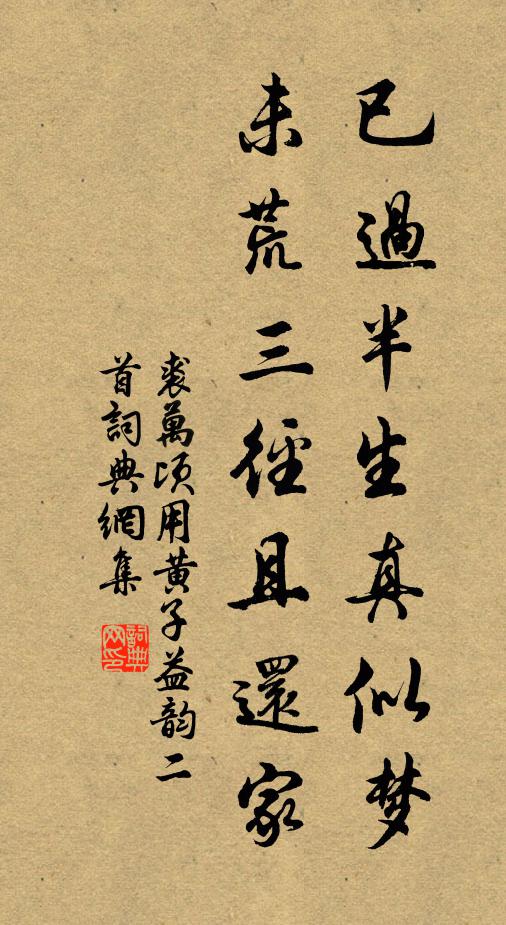 已過半生真似梦
未荒三徑且還家
裘萬頃用黄子益韵二
首詞典網集
詞典
网印